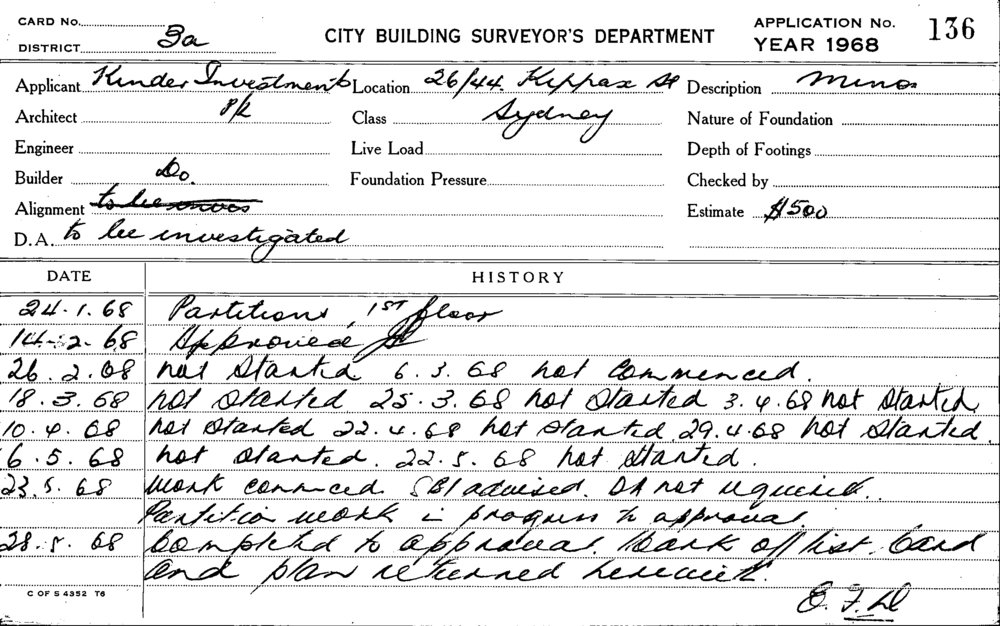 CARD No.
DISTRICT 3a
CITY BUILDING SURVEYOR'S DEPARTMENT
APPLICATION No. 136
YEAR 1968
Applicant Kinder Investments P/L
Location 26/44. Kippax St
Description Minor
Architect
Class Sydney
Nature of Foundation
Engineer
Live Load
Depth of Footings
Builder Do.
Foundation Pressure
Checked by
Alignment
Estimate $500
D.A. to be investigated
DATE HISTORY
24.1.68 Partitions, 1ST floor
14-2-68 Approved
26.2.68 not started 6.3.68 not commenced.
18.3.68 not started 25.3.68 not started 3.4.68 not started
10.4.68 not started 22.4.68 not started 29.4.68 not started.
6.5.68 not started. 22.5.68 not started.
23.5.68 work commced. SBI advised. DA not required.
Partition work in progress to approval.
28.5.68 Completed to approval. Mark off list. Card
and plan returned herewith.
C OF S 4352 T6